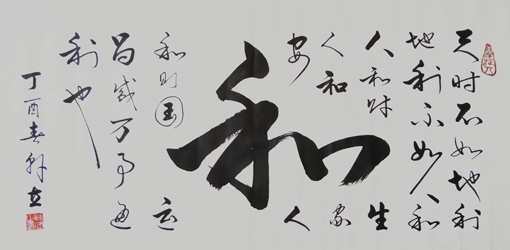 天时不如地利
地利不如人和
人和财生
人和家
安人
和
和则国
昌盛万事通
利也
丁酉春立